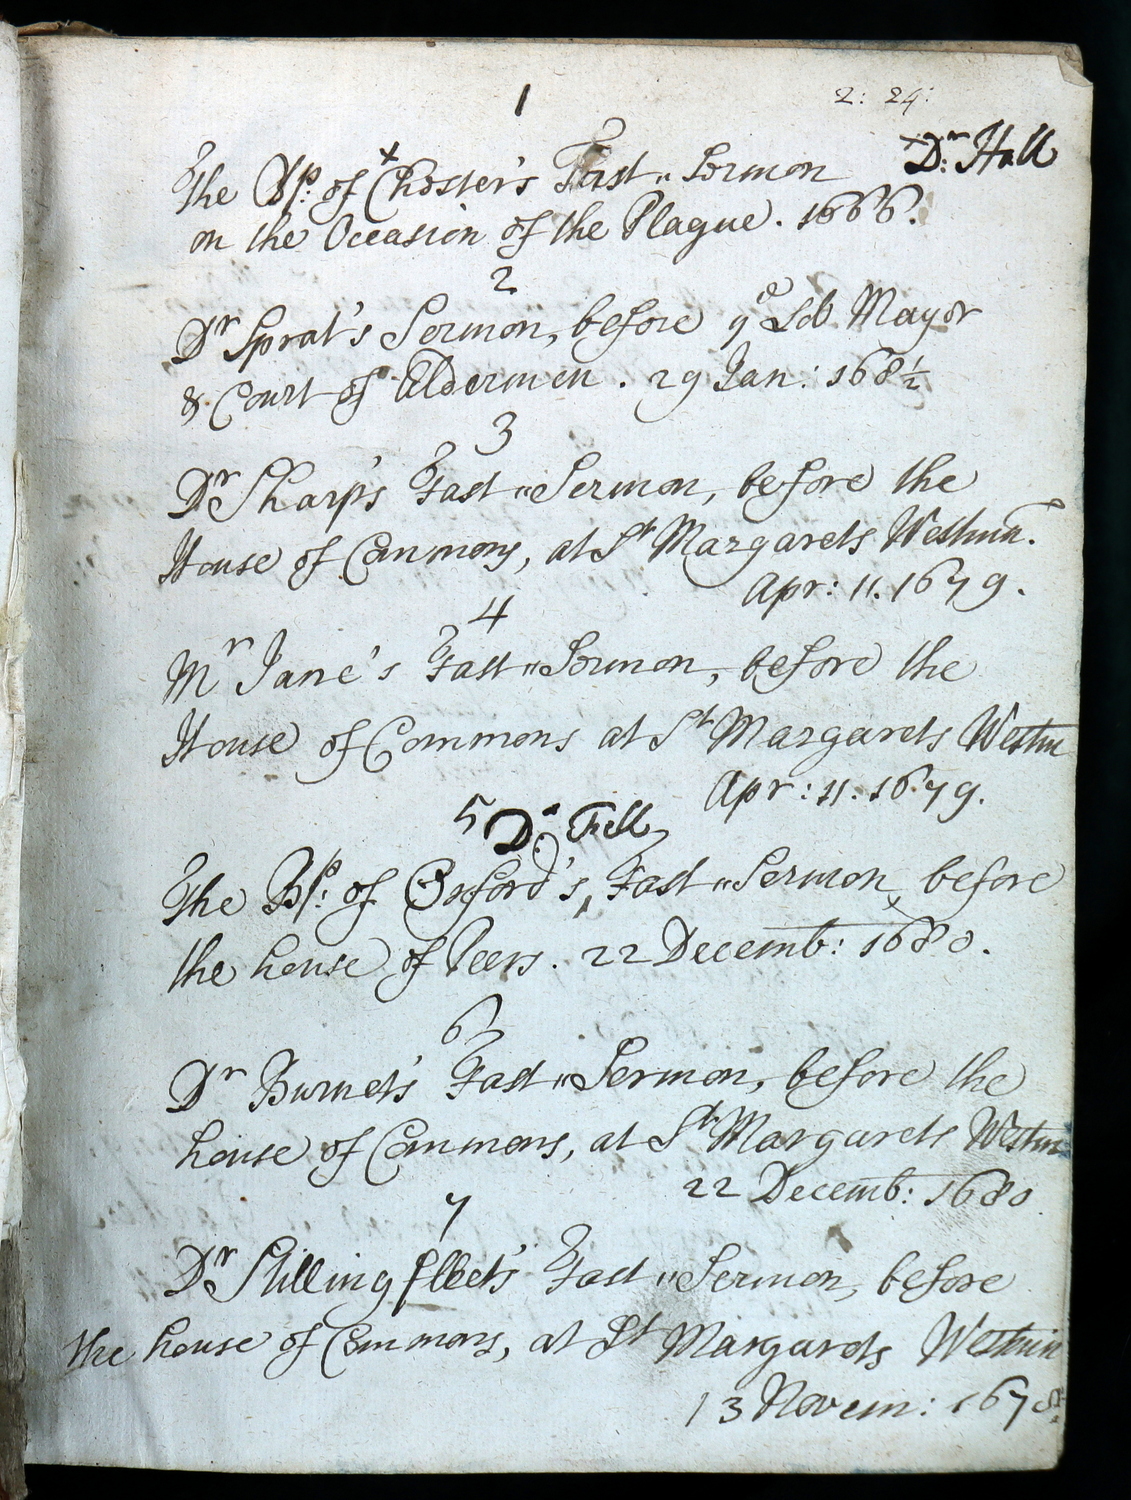 1
2: 24:
The Bp: of Chester's Fast„Sermon + Dr: Hall
on the Occasion of the Plague. 1666.
2
Dr Sprat's Sermon, before ye Ld Mayor
& Court of Eldermen. 29 Jan: 168½
3
Dr Sharp's Fast„Sermon, before the
House of Commons, at St Margarets Westmin.
Apr: 11. 1679.
4
Mr Jane's Fast„Sermon, before the
House of Commons at St Margarets Westm
Apr: 11. 1679.
5 Dr: Fell
The Bp: of Oxford's, Fast„Sermon, before
the house of Peers. 22 Decemb: 1680.
6
Dr Burnet's Fast„Sermon, before the
house of Commons, at St Margarets Westm
22 Decemb: 1680.
7
Dr Stillingfleet's Fast„Sermon, before
the house of Commons, at St Margarets Westmin
13 Novem: 1678: